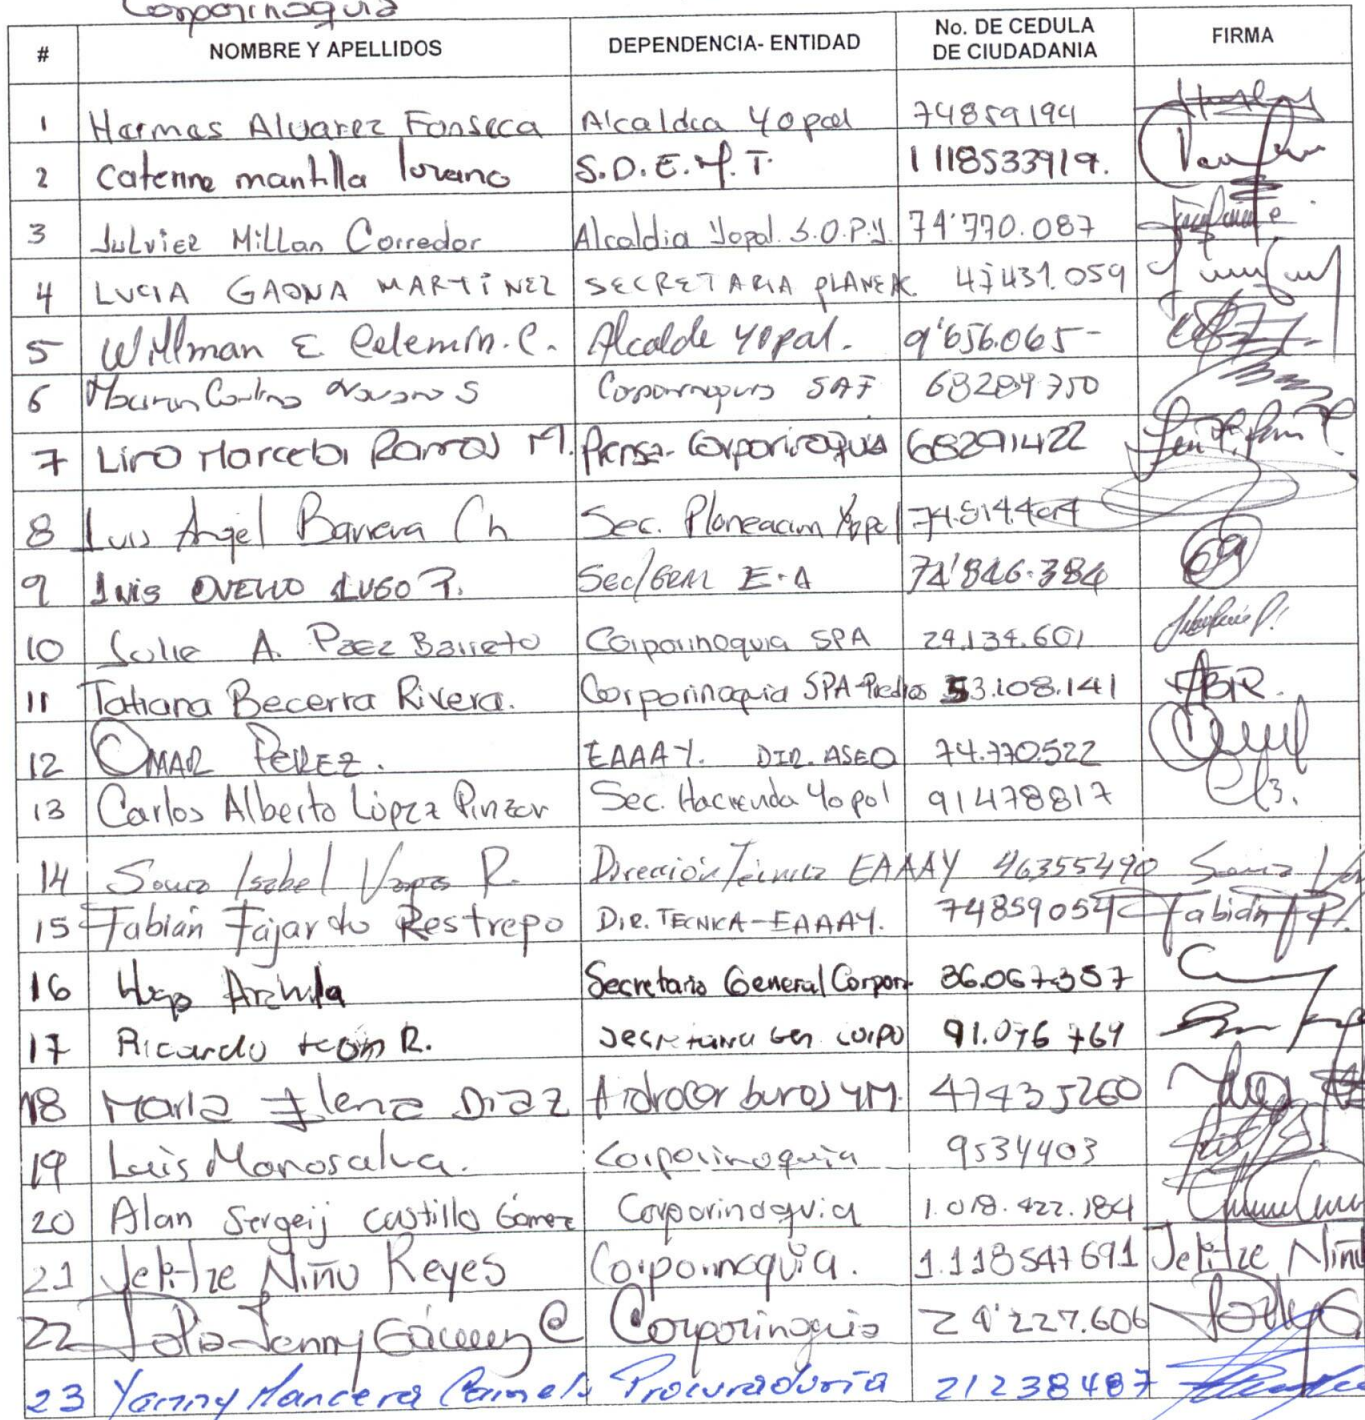 Corporinoquia
# NOMBRE Y APELLIDOS DEPENDENCIA- ENTIDAD No. DE CEDULA DE CIUDADANIA FIRMA
1 Harmes Alvarez Fonseca Alcaldia Yopal 74859194
2 Caterine mantilla lozano S.D.E.M.T. 1118533919.
3 Julviez Millan Corredor Alcaldia Yopal. S.O.P.Y. 74'770.087
4 LUCIA GAONA MARTINEZ SECRETARIA PLANEAC 47431.059
5 Willman E Celemin.C. Alcalde Yopal. 9'656.065-
6 S Corporinoquia SAF 68284750
7 Marcela Ramos M. Prensa- Corporinoquia 68291422
8 Luis Angel Barrera Ch Sec. Planeacion Yopal
9 Luis OVELIO LUGO P. E-A 74'846.384
10 A. Paez Barreto Corporinoquia SPA 24.134.601
11 Tatiana Becerra Rivera. Corporinoquia SPA-Predios 53.108.141 TBR.
12 OMAR PEREZ. EAAAY. DIR. ASEO 74.770.522
13 Carlos Alberto López Pinzon Sec. Hacienda Yopal 91478817
14 Isabel R. Dirección Técnica EAAAY 46355490
15 Fabián Fajardo Restrepo DIR. TECNICA-EAAAY. 74859054 Fabián
16 Hugo Archila Secretario General Corpor- 86.067.357
17 Ricardo León R. Secretaria Gen corpo 91.076 769
18 Maria Elena Diaz Hidrocarburos YM. 47435260
19 Luis Manosalva. Corporinoquia 9534403
20 Alan Sergeij Castillo Gómez Corporinoquia 1.018.422.184
21 Jelitze Niño Reyes Corporinoquia. 1.118547691 Jelitze Niño
22 Corporinoquia 24'227.606
23 Yanny Mancera Procuraduria 21238487